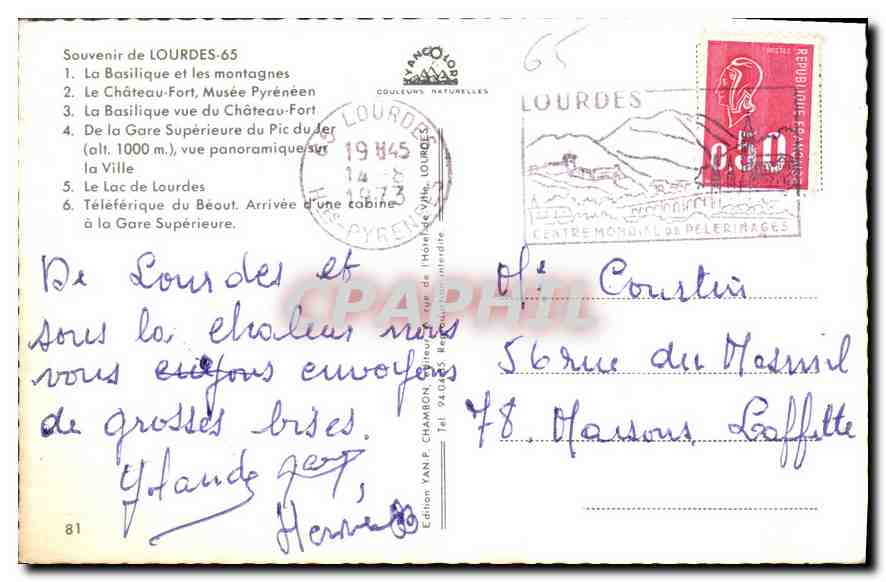 Souvenir de LOURDES-65
1. La Basilique et les montagnes
2. Le Château-Fort, Musée Pyrénéen
3. La Basilique vue du Château-Fort
4. De la Gare Supérieure du Pic du Jer
(alt. 1000 m.), vue panoramique sur
la Ville
5. Le Lac de Lourdes
6. Téléférique du Béout. Arrivée d'une cabine
à la Gare Supérieure.
YANCOLOR
COULEURS NATURELLES
65 LOURDES
19 H45
14 - 8
1973
Htes-PYRENEES
65
LOURDES
CENTRE MONDIAL DE PELERINAGES
REPUBLIQUE FRANCAISE
0,50
De Lourdes et
sous la chaleur nous
vous envoyons
de grosses bises.
Yolande
Hervé
81
Edition YAN.P. CHAMBON, Editeur, rue de l'Hôtel de Ville, LOURDES.
Reproduction interdite
CPAPHIL
Mr Coustin
56 rue du Mesnil
78. Maisons Laffitte